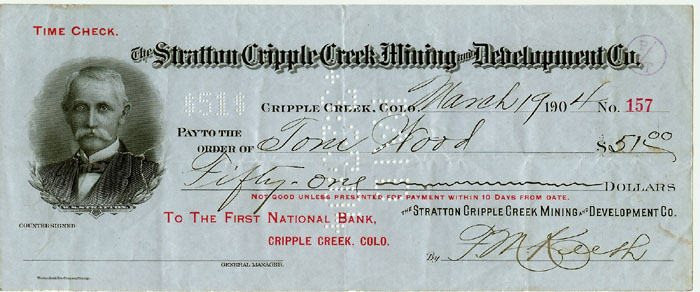 TIME CHECK.
The Stratton Cripple Creek Mining and Development Co.
$51$
CRIPPLE CREEK, COLO. March 19 1904 No. 157
PAY TO THE
ORDER OF Tom Wood $51.00
Fifty-one DOLLARS
NOT GOOD UNLESS PRESENTED FOR PAYMENT WITHIN 10 DAYS FROM DATE.
W.S. STRATTON.
TO THE FIRST NATIONAL BANK,
CRIPPLE CREEK, COLO.
THE STRATTON CRIPPLE CREEK MINING AND DEVELOPMENT CO.
COUNTERSIGNED
By
GENERAL MANAGER.